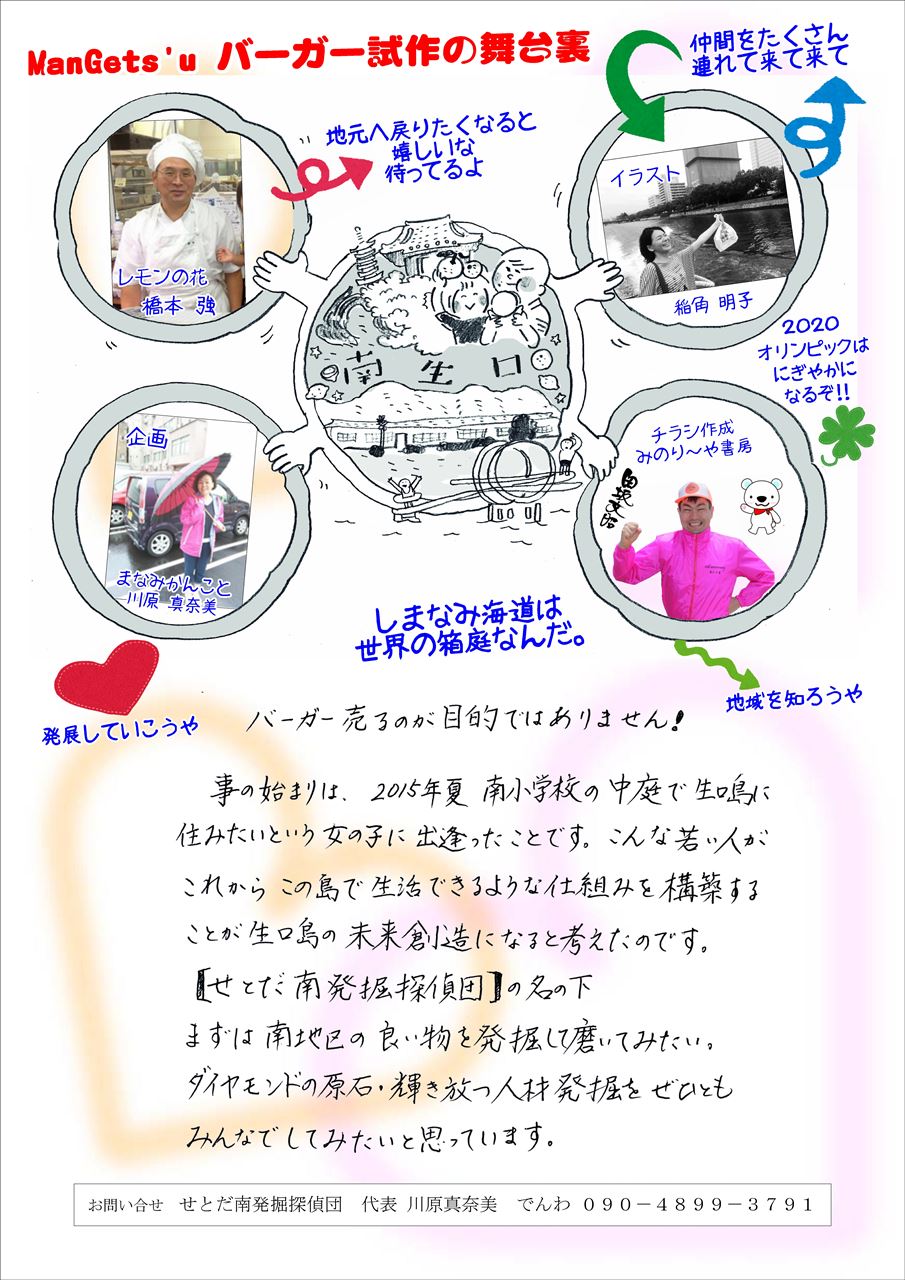 ManGets'u バーガー試作の舞台裏
仲間をたくさん
連れて来て来て
地元へ戻りたくなると
嬉しいな
待ってるよ
レモンの花
橋本 強
イラスト
稲角 明子
2020
オリンピックは
にぎやかに
なるぞ!!
南生口
企画
まなみかんこと
川原 真奈美
チラシ作成
みのり〜や書房
しまなみ海道は
世界の箱庭なんだ。
発展していこうや
地域を知ろうや
バーガー売るのが目的ではありません!
事の始まりは、2015年夏 南小学校の中庭で生口島に
住みたいという女の子に出逢ったことです。こんな若い人が
これからこの島で生活できるような仕組みを構築する
ことが生口島の未来創造になると考えたのです。
【せとだ南発掘探偵団】の名の下
まずは南地区の良い物を発掘して磨いてみたい。
ダイヤモンドの原石・輝き放つ人材発掘をぜひとも
みんなでしてみたいと思っています。
お問い合せ せとだ南発掘探偵団 代表 川原真奈美 でんわ 090-4899-3791